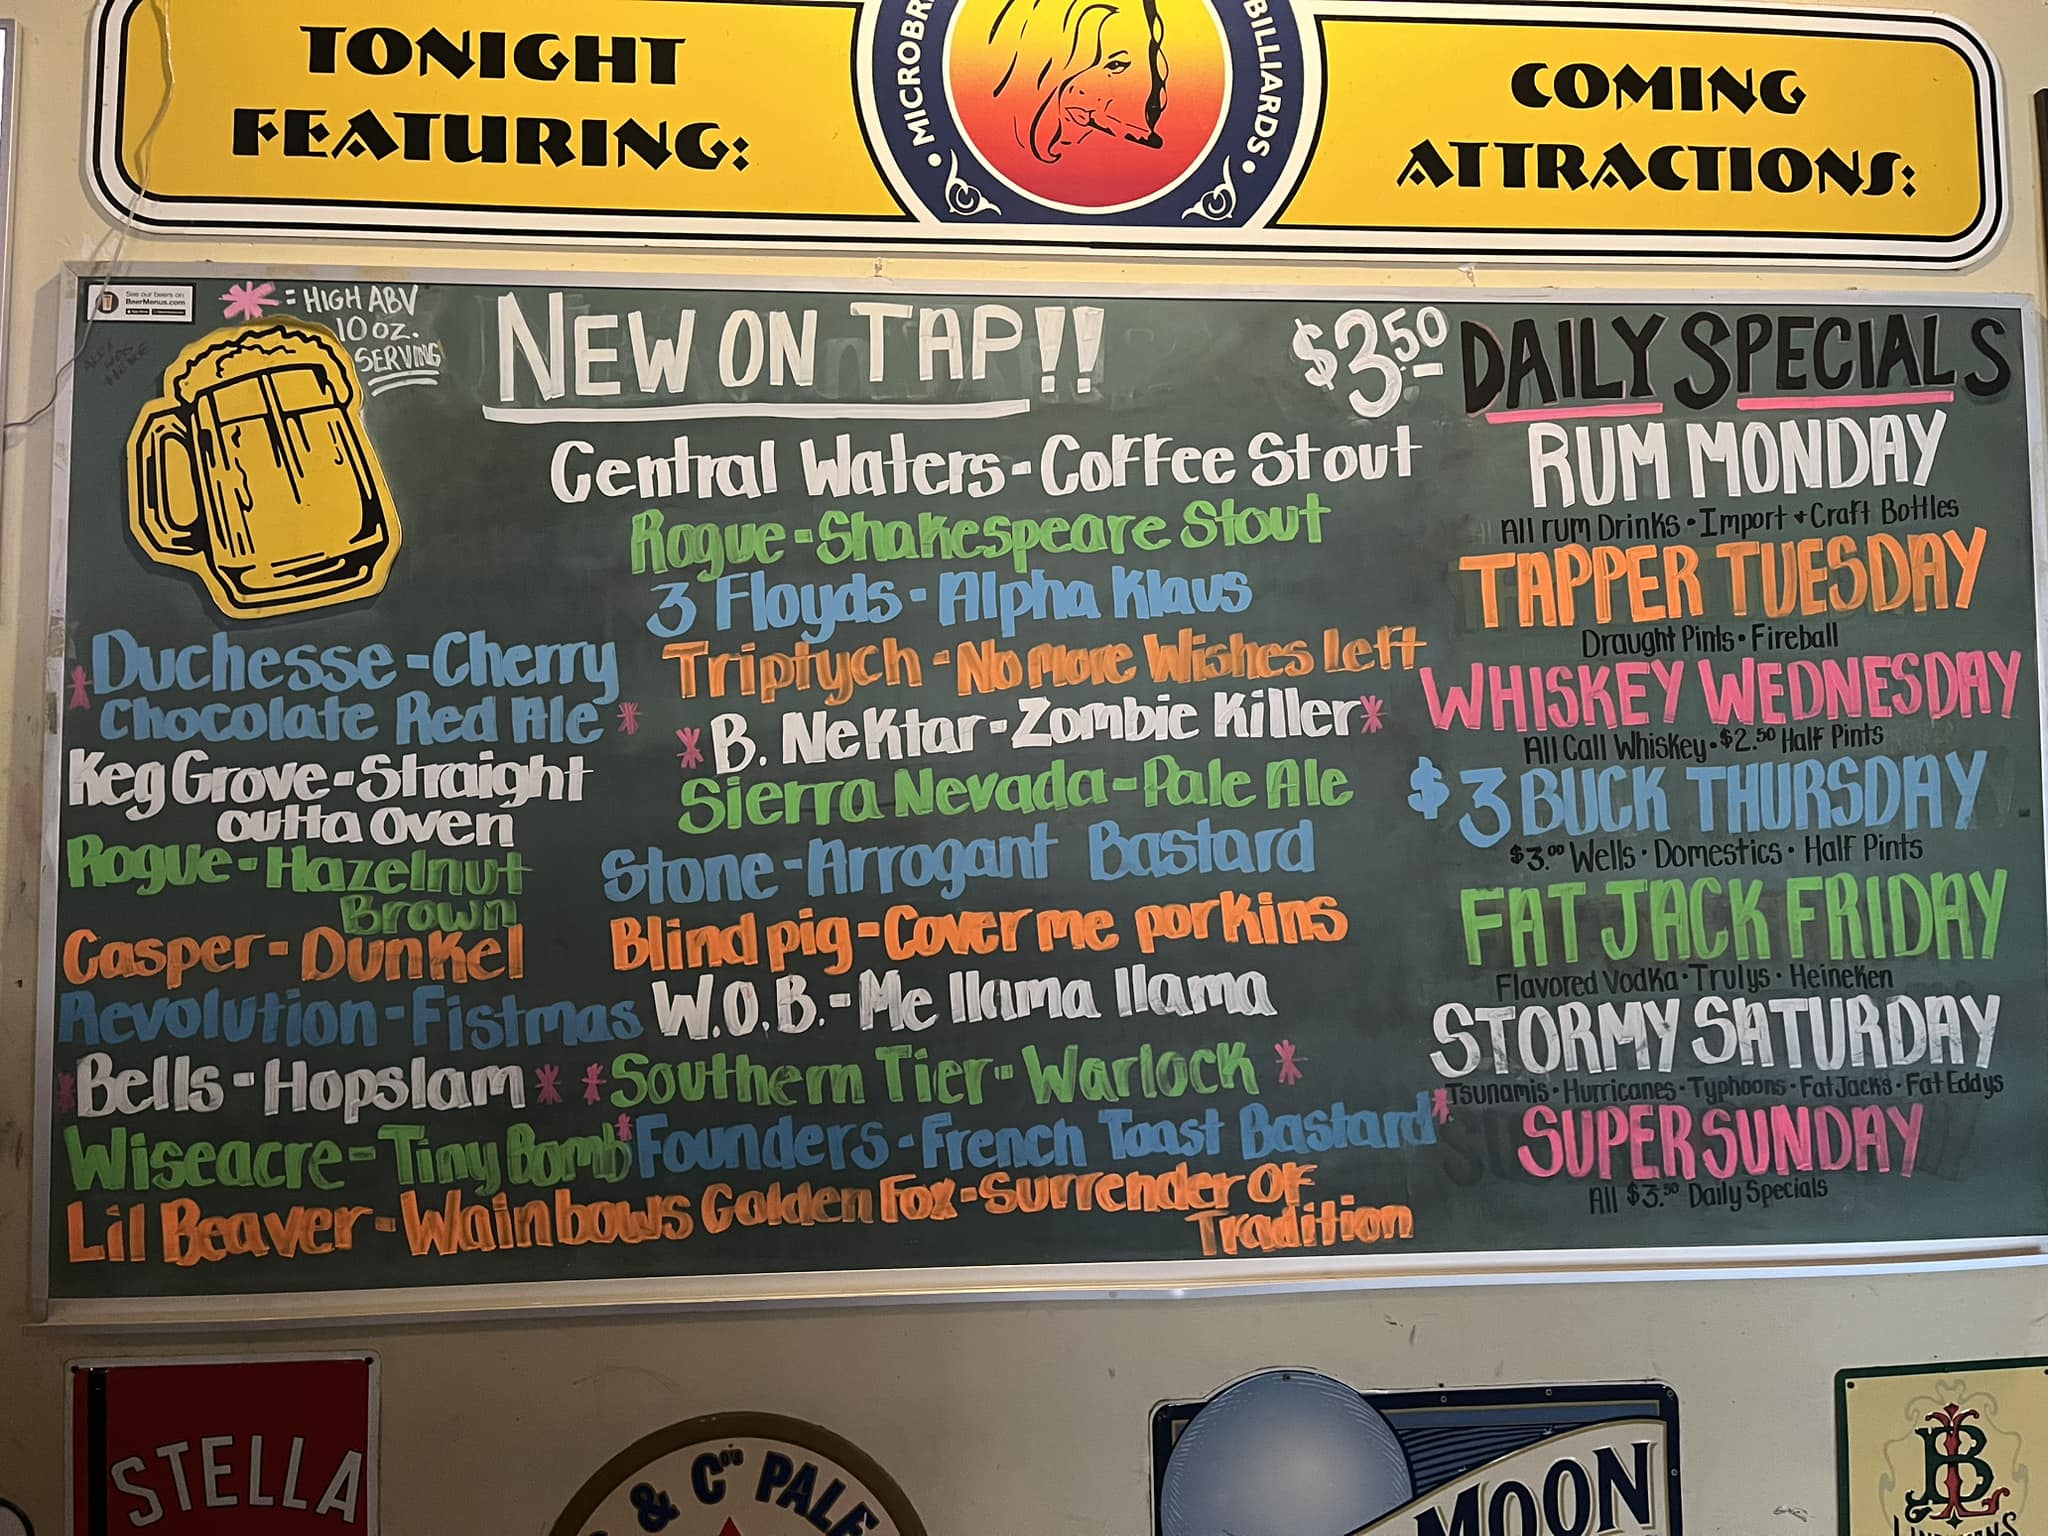 TONIGHT
FEATURING:
MICROBR
BILLIARDS
COMING
ATTRACTIONS:
See our beers on
BeerMenus.com
* = HIGH ABV
10 oz.
SERVING
NEW ON TAP!!
Central Waters - Coffee Stout
Rogue - Shakespeare Stout
3 Floyds - Alpha Klaus
Triptych - No More Wishes left
* B. Nektar - Zombie Killer *
Sierra Nevada - Pale Ale
Stone - Arrogant Bastard
Blind pig - Cover me porkins
W.O.B. - Me llama llama
* Southern Tier - Warlock *
* Founders - French Toast Bastard *
Golden Fox - Surrender Of
Tradition
* Duchesse - Cherry
Chocolate Red Ale *
Keg Grove - Straight
outta Oven
Rogue - Hazelnut
Brown
Casper - Dunkel
Revolution - Fistmas
* Bells - Hopslam *
Wiseacre - Tiny Bomb
Lil Beaver - Wainbows
$3.50 DAILY SPECIALS
RUM MONDAY
All rum Drinks • Import + Craft Bottles
TAPPER TUESDAY
Draught Pints • Fireball
WHISKEY WEDNESDAY
All Call Whiskey • $2.50 Half Pints
$3 BUCK THURSDAY
$3.00 Wells • Domestics • Half Pints
FAT JACK FRIDAY
Flavored Vodka • Trulys • Heineken
STORMY SATURDAY
Tsunamis • Hurricanes • Typhoons • Fat Jacks • Fat Eddys
SUPER SUNDAY
All $3.50 Daily Specials
STELLA
& Co's PALE
MOON
BL